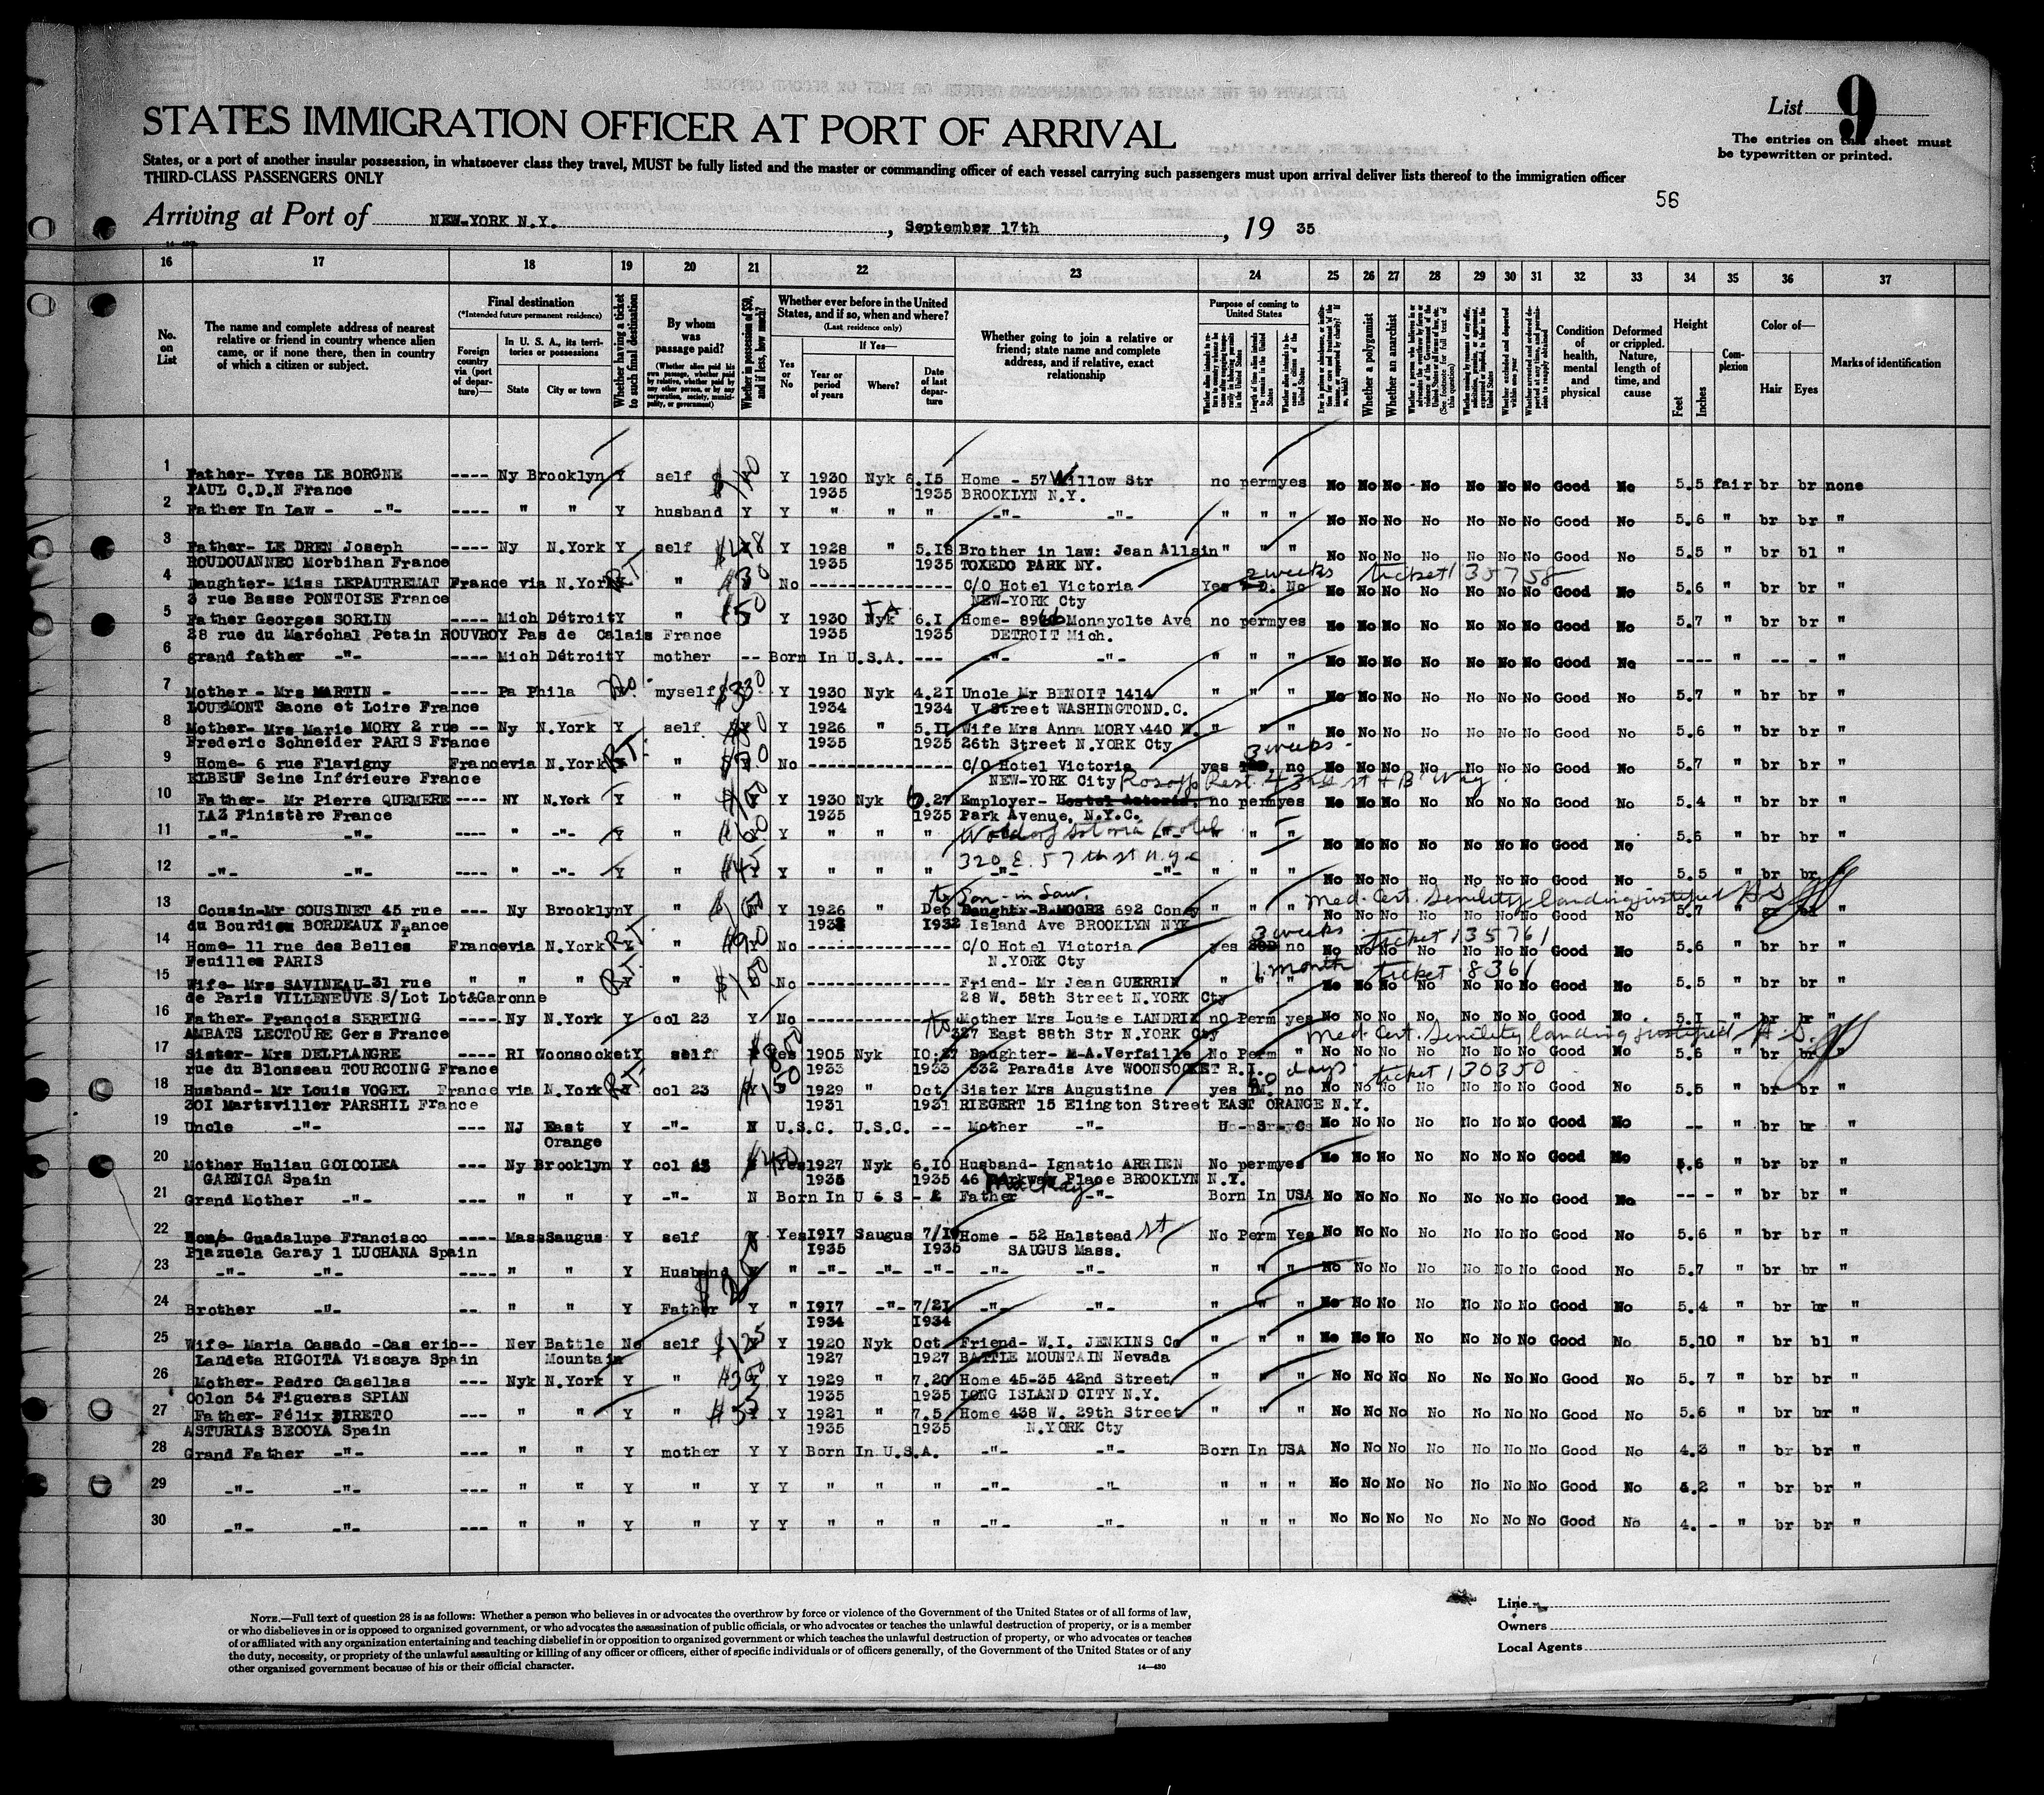 STATES IMMIGRATION OFFICER AT PORT OF ARRIVAL
List 9
The entries on this sheet must
be typewritten or printed.
States, or a port of another insular possession, in whatsoever class they travel, MUST be fully listed and the master or commanding officer of each vessel carrying such passengers must upon arrival deliver lists thereof to the immigration officer
THIRD-CLASS PASSENGERS ONLY
56
Arriving at Port of NEW-YORK N.Y., September 17th, 19 35
16 17 18 19 20 21 22 23 24 25 26 27 28 29 30 31 32 33 34 35 36 37
No. on List
The name and complete address of nearest relative or friend in country whence alien came, or if none there, then in country of which a citizen or subject.
Final destination
(*Intended future permanent residence)
Foreign country via (port of departure)—
In U. S. A., its territories or possessions
State
City or town
Whether having a ticket to such final destination
By whom was passage paid?
(Whether alien paid his own passage, whether paid by relative, whether paid by any other person, or by any corporation, society, municipality, or government)
Whether in possession of $50, and if less, how much?
Whether ever before in the United States, and if so, when and where?
(Last residence only)
Yes or No
If Yes—
Year or period of years
Where?
Date of last departure
Whether going to join a relative or friend; state name and complete address, and if relative, exact relationship
Purpose of coming to United States
Whether a polygamist
Whether an anarchist
Condition of health, mental and physical
Deformed or crippled. Nature, length of time, and cause
Height
Feet
Inches
Complexion
Color of—
Hair
Eyes
Marks of identification
1 Father- Yves LE BORGNE ---- Ny Brooklyn Y self Y 1930 Nyk 6.15 Home - 57 Willow Str no perm yes No No No No No No No Good No 5.5 fair br br none
PAUL C.D.N France 1935 1935 BROOKLYN N.Y.
2 Father In Law - -"- ---- " " Y husband Y Y " " " -"- -"- " " " No No No No No No No Good No 5.6 " br br "
3 Father- LE DREN Joseph ---- Ny N.York Y self Y 1928 " 5.18 Brother in law: Jean Allain " " " No No No No No No No Good No 5.5 " br bl "
ROUDOUANNEC Morbihan France 1935 1935 TOXEDO PARK NY.
2 weeks ticket 135758
4 Daughter- Miss LEPAUTREMAT France via N.York RT " No --------------- C/O Hotel Victoria Yes No No No No No No No No Good No 5.6 " br br "
3 rue Basse PONTOISE France NEW-YORK Cty
5 Father Georges SORLIN ---- Mich Détroit Y " $50 Y 1930 Nyk 6.1 Home- Monayolte Ave no perm yes No No No No No No No Good No 5.7 " br br "
28 rue du Maréchal Petain ROUVROY Pas de Calais France 1935 1935 DETROIT Mich.
6 grand father -"- ---- Mich Détroit Y mother -- Born In U.S.A. --- -"- -"- " " " No No No No No No No Good No ---- " -- - "
7 Mother - Mrs MARTIN - ---- Pa Phila No myself Y 1930 Nyk 4.21 Uncle Mr BENOIT 1414 " " " No No No No No No No Good No 5.7 " br br "
LOUEMONT Saone et Loire France 1934 1934 V Street WASHINGTON D.C.
8 Mother- Mrs Marie MORY 2 rue -- Ny N.York Y self Y 1926 " 5.11 Wife Mrs Anna MORY 440 W. " " " No No No No No No No Good No 5.6 " br br "
Frederic Schneider PARIS France 1935 1935 26th Street N.YORK Cty
3 weeks
9 Home- 6 rue Flavigny France via N.York RT " No --------------- C/O Hotel Victoria yes no No No No No No No No Good No 5.7 " br br "
ELBEUF Seine Inférieure France NEW-YORK City Rosoffs Rest. 43rd st + B'Way
10 Father- Mr Pierre QUEMERE ---- NY N.York Y " Y 1930 Nyk 6.27 Employer- no perm yes No No No No No No No Good No 5.4 " br br "
LAZ Finistère France 1935 1935 Park Avenue, N.Y.C.
11 -"- -"- ---- " -"- Y " Y " " " Waldorf Astoria Hotel " " " No No No No No No No Good No 5.6 " br br "
320 E. 57th st N.Y.C
12 -"- -"- ---- " -"- Y " $45 Y Y " " " -"- -"- " " " No No No No No No No Good No 5.5 " br br "
to Son-in Law. Med. Cert. Senility landing justified
13 Cousin-Mr COUSINET 45 rue --- Ny Brooklyn Y " Y 1926 " Dec Daughter-B.MOORE 692 Coney " " " No No No No No No No Good No 5.7 " " "
du Bourdieu BORDEAUX France 1932 Island Ave BROOKLYN NYK
3 weeks ticket 135761
14 Home- 11 rue des Belles France via N.York RT " No --------------- C/O Hotel Victoria yes no No No No No No No No Good No 5.6 " br br "
Feuilles PARIS N.YORK Cty
1 month ticket 8361
15 Wife- Mrs SAVINEAU-31 rue " " " RT " No --------------- Friend- Mr Jean GUERRIN " " " No No No No No No No Good No 5.5 " br br "
de Paris VILLENEUVE S/Lot Lot&Garonne 28 W. 58th Street N.YORK Cty
16 Father- François SEREING ---- Ny N.York Y col 23 Y No --------------- Mother Mrs Louise LANDRIN no Perm yes No No No No No No No Good No 5.1 " br br "
AMBATS LECTOURE Gers France 327 East 88th Str N.YORK Cty
to Med. Cert. Senility landing justified
17 Sister- Mrs DELPLANGRE ---- RI Woonsocket Y self Yes 1905 Nyk 10.27 Daughter- M-A.Verfaille No Perm " No No No No No No No Good No 5.6 " br br "
rue du Blonseau TOURCOING France 1933 1933 532 Paradis Ave WOONSOCKET R.I.
60 days ticket 130350
18 Husband- Mr Louis VOGEL France via N.York RT col 23 $150 Y 1929 " Oct Sister Mrs Augustine yes no No No No No No No No Good No 5.5 " br br "
301 Martzviller PARSHIL France 1931 1931 RIEGERT 15 Elington Street EAST ORANGE N.Y.
19 Uncle -"- --- NJ East Y -"- N U.S.C. U.S.C. -- Mother -"- No No No No No No No Good No -- " br br "
Orange
20 Mother Huliau GOICOLEA --- Ny Brooklyn Y col Yes 1927 Nyk 6.10 Husband- Ignatio ARRIEN No perm yes No No No No No No No Good No 5.6 " br br "
GARNICA Spain 1935 1935 46 Place BROOKLYN N.Y.
21 Grand Mother -"- --- " " Y -"- N Born In U S Father -"- Born In USA No No No No No No No Good No --- " br br "
22 Home- Guadalupe Francisco ---- Mass Saugus Y self Yes 1917 Saugus Home - 52 Halstead St No Perm Yes No No No No No No No Good No 5.6 " br br "
Plazuela Garay 1 LUCHANA Spain 1935 1935 SAUGUS Mass.
23 -"- -"- ---- " " Y Husband " -"- -"- -"- -"- -"- " " " No No No No No No No Good No 5.7 " br br "
24 Brother -"- -- " " Y Father Y " 1917 -"- 7/21 -"- -"- " " " No No No No No No No Good No 5.4 " br br "
1934 1934
25 Wife- Maria Casado -Cas erio-- Nev Battle No self $125 Y 1920 Nyk Oct Friend- W.I. JENKINS Co " " " No No No No No No No Good No 5.10 " br bl "
Landeta RIGOITA Viscaya Spain Mountain 1927 1927 BATTLE MOUNTAIN Nevada
26 Mother- Pedro Casellas ---- Nyk N.York Y " Y 1929 " 7.20 Home 45-35 42nd Street " " " No No No No No No No Good No 5. 7 " br br "
Colon 54 Figueras SPIAN 1935 1935 LONG ISLAND CITY N.Y.
27 Father- Félix PIRETO --- " " Y " Y 1921 " 7.5 Home 438 W. 29th Street " " " No No No No No No No Good No 5.6 " br br "
ASTURIAS BECOYA Spain 1935 1935 N.YORK Cty
28 Grand Father -"- --- " " Y mother Y Y Born In U.S.A. -"- -"- Born In USA No No No No No No No Good No 4.3 " br br "
29 -"- -"- --- " " Y " Y Y " " " -"- -"- " " " No No No No No No No Good No 4.2 " br br "
30 -"- -"- --- " " Y " Y Y " " " -"- -"- " " " No No No No No No No Good No 4. - " br br "
NOTE.—Full text of question 28 is as follows: Whether a person who believes in or advocates the overthrow by force or violence of the Government of the United States or of all forms of law,
or who disbelieves in or is opposed to organized government, or who advocates the assassination of public officials, or who advocates or teaches the unlawful destruction of property, or is a member
of or affiliated with any organization entertaining and teaching disbelief in or opposition to organized government or which teaches the unlawful destruction of property, or who advocates or teaches
the duty, necessity, or propriety of the unlawful assaulting or killing of any officer or officers, either of specific individuals or of officers generally, of the Government of the United States or of any
other organized government because of his or their official character.
14—430
Line
Owners
Local Agents